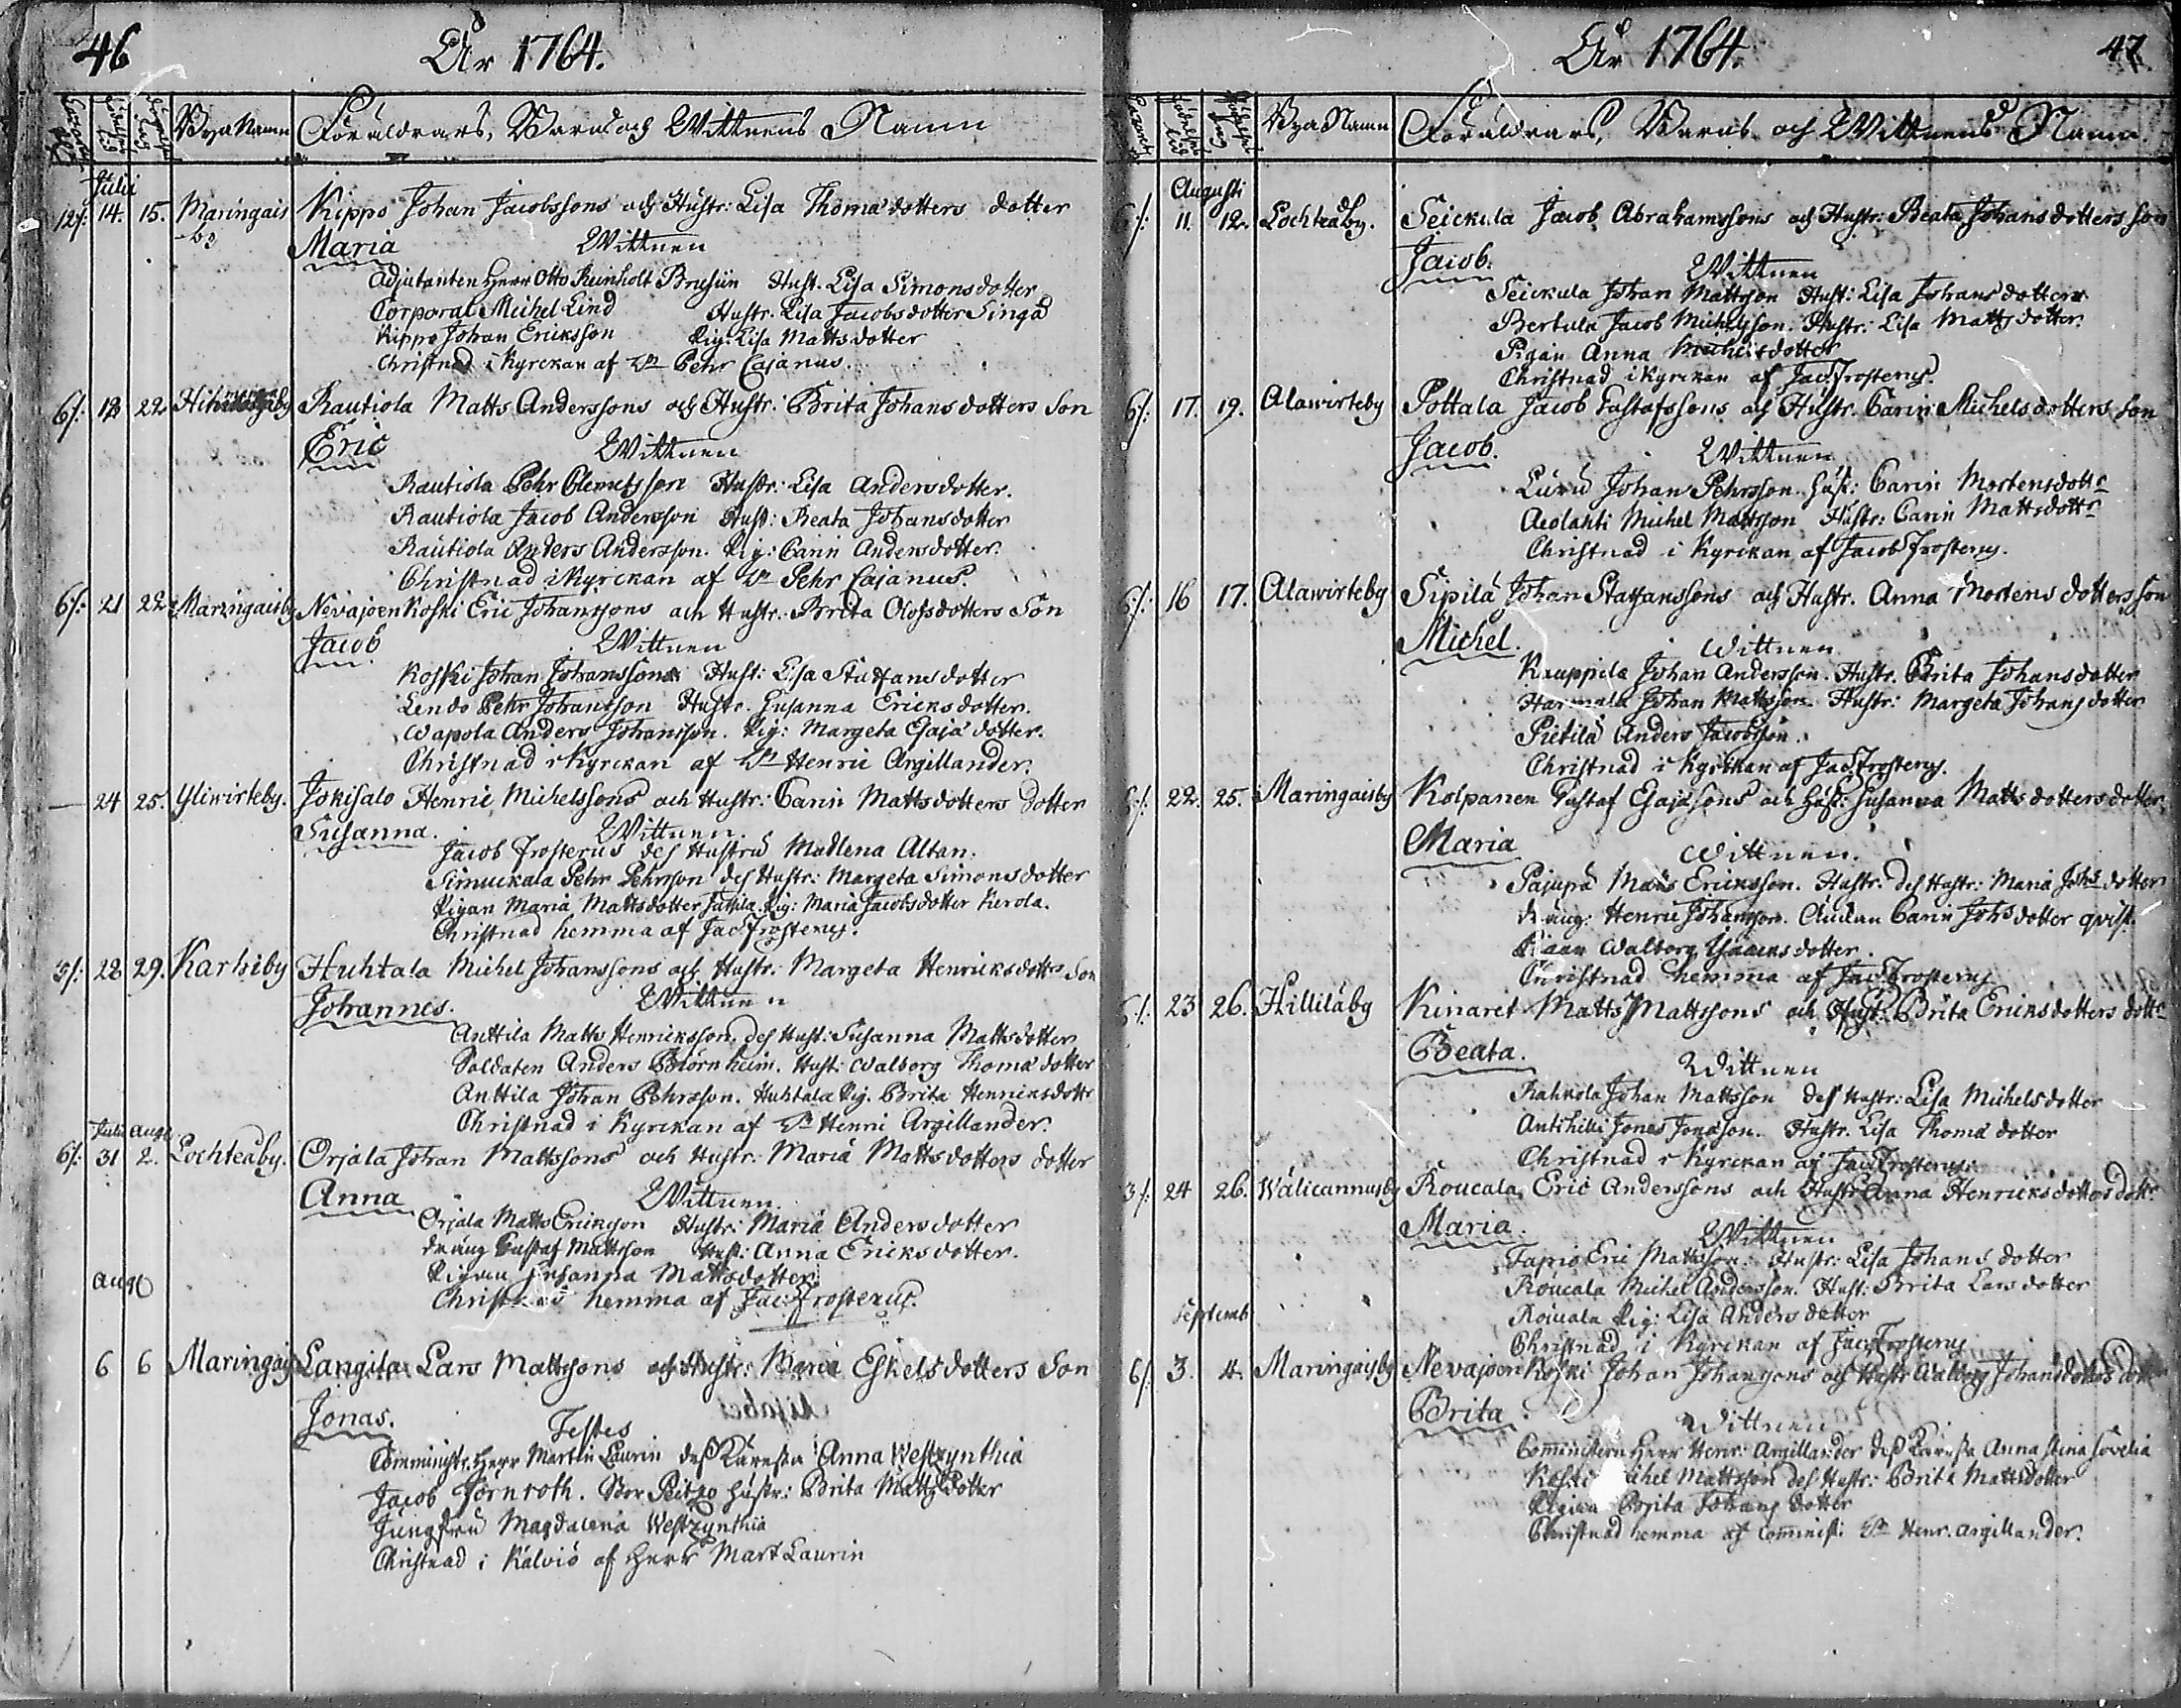 46
År 1764.
Bya Namn Föräldrars, Barns och Wittnens Namn
Julii
12/: 14. 15. Maringais Kippo Johan Jacobssons och Hustr: Lisa Thomædotters dotter
-by
Maria Wittnen
Adjutanten Herr Otto Reinholt Brusiin Hust. Lisa Simonsdotter
Corporal Michel Lind Hustr. Lisa Jacobsdotter Singa
Kippo Johan Eriksson Pig: Lisa Mattsdotter
Christnad i Kyrckan af Dn Pehr Cajanus.
6/: 22 Rautiola Matts Anderssons och Hustr. Brita Johansdotters Son
Eric Wittnen
Rautiola Pehr Clemetsson Hustr: Lisa Andersdotter.
Rautiola Jacob Andersson Hust: Beata Johansdotter
Rautiola Anders Andersson. Pig: Carin Andersdotter.
Christnad i Kyrckan af Dn Pehr Cajanus.
6/: 21 22 Maringaisby Nevajoenkoski Eric Johanssons och Hustr. Brita Olofsdotters Son
Jacob Wittnen
Koski Johan Johanssons Hust: Lisa Staffansdotter
Lendo Pehr Johansson Hustr. Susanna Ericksdotter.
Wapola Anders Johansson. Pig: Margeta Esaiædotter.
Christnad i Kyrckan af Dn Henric Argillander.
— 24 25. Yliwirteby. Jokisalo Henric Michelssons och Hustr: Carin Mattsdotters Dotter
Susanna. Wittnen.
Jacob Frosterus des Hustru Madlena Altan.
Simuckala Pehr Pehrsson des Hustr: Margeta Simonsdotter
Pigan Maria Mattsdotter Pig: Maria Jacobsdotter Kierola.
Christnad hemma af Jac Frosterus.
3/: 28 29. Karhiby Huhtala Michel Johanssons och Hustr: Margeta Henricksdotters Son
Johannes. Wittnen
Anttila Matts Henricksson. des Hust: Susanna Mattsdotter
Soldaten Anders Biörnheim. Hust: Walborg Thomædotter
Anttila Johan Pehrsson. Huhtala Pig. Brita Henricksdotter
Christnad i Kyrckan af Dn Henric Argillander.
Julii Aug
6/: 31 2. Lochteåby. Orjala Johan Mattssons och Hustr: Maria Mattsdotters dotter
Anna Wittnen.
Orjala Matts Ericksson Hustr: Maria Andersdotter
dräng Gustaf Mattsson Hust: Anna Ericksdotter.
Pigan Susanna Mattsdotter
Christnad hemma af Jac: Frosterus.
Aug
6 6 Maringais Langila Lars Mattssons och Hustr: Maria Eskelsdotters Son
Jonas. Testes
Comminstr. Herr Martin Laurin dess Käresta Anna Westzynthia
Jacob Jernroth. Bor Peitzo Hustr: Brita Matts Dotter
Jungfru Magdalena Westzynthia
Christnad i Kälviö af Herr Mart Laurin
År 1764.
47
Bya Namn Föräldrars, Barns och Wittnens Namn
Augusti
6/: 11. 12. Lochteåby. Seickula Jacob Abrahamssons och Hustr: Beata Johansdotters Son
Jacob. Wittnen
Seickula Johan Mattsson Hust: Lisa Johansdotter
Bertula Jacob Michelsson. Hustr: Lisa Mattsdotter.
Pigan Anna Michelsdotter
Christnad i Kyrckan af Jac. Frosterus.
6/: 17. 19. Alawirteby Pottala Jacob Gustafssons och Hustr. Carin Michelsdotters Son
Jacob. Wittnen
Luru Johan Pehrsson. Hust: Carin Mortensdottr
Aeolahti Michel Mattsson Hustr: Carin Mattsdottr
Christnad i Kyrckan af Jacob Frosterus.
6/: 16 17. Alawirteby Sipilä Johan Staffanssons och Hustr. Anna Mortensdotters Son
Michel. Wittnen
Kauppila Johan Andersson. Hustr. Brita Johansdotter
Harmala Johan Mattsson. Hustr: Margeta Johansdotter
Pietilä Anders Jacobsson.
Christnad i Kyrckan af Jac Frosterus.
6/: 22. 25. Maringaisby Kolpanen Gustaf Esaiæsons och Hust: Susanna Mattsdotters dotter
Maria Wittnen.
Pajupä Matts Ericksson. Hustr. des Hustr: Maria Johs dotter
dräng: Henric Johansson. Carin Johsdotter qvist.
Pigan Walborg Isaacksdotter.
Christnad hemma af Jac Frosterus
6/: 23 26. Hilliläby Kinaret Matts Mattssons och Hust: Brita Ericksdotters dottr
Beata. Wittnen
Rahkola Johan Mattsson des Hustr: Lisa Michelsdotter
Antihilli Jonas Jonæson. Hustr. Lisa Thomædotter
Christnad i Kyrckan af Jac Frosterus.
3/: 24 26. Wälicannusby Roucala Eric Anderssons och Hustr Anna Henricksdotters dottr
Maria. Wittnen
Tapio Eric Mattsson. Hustr: Lisa Johansdotter
Roucala Michel Andersson. Hust: Brita Larsdotter
Roucala Pig: Lisa Andersdotter
Christnad i Kyrckan af Jac Frosterus
Septemb
6/: 3. 4. Maringaisby Nevajoenkoski Johan Johanssons och Hustr Walborg Johansdotters dotter
Brita Wittnen
Comministern Herr Henr: Argillander dess Käresta Anna Stina Sovelia
Koski Michel Mattsson des Hustr: Brita Mattsdotter
Pigan Brita Johans Dotter
Christnad hemma af Comminist: Dn Henr. Argillander.